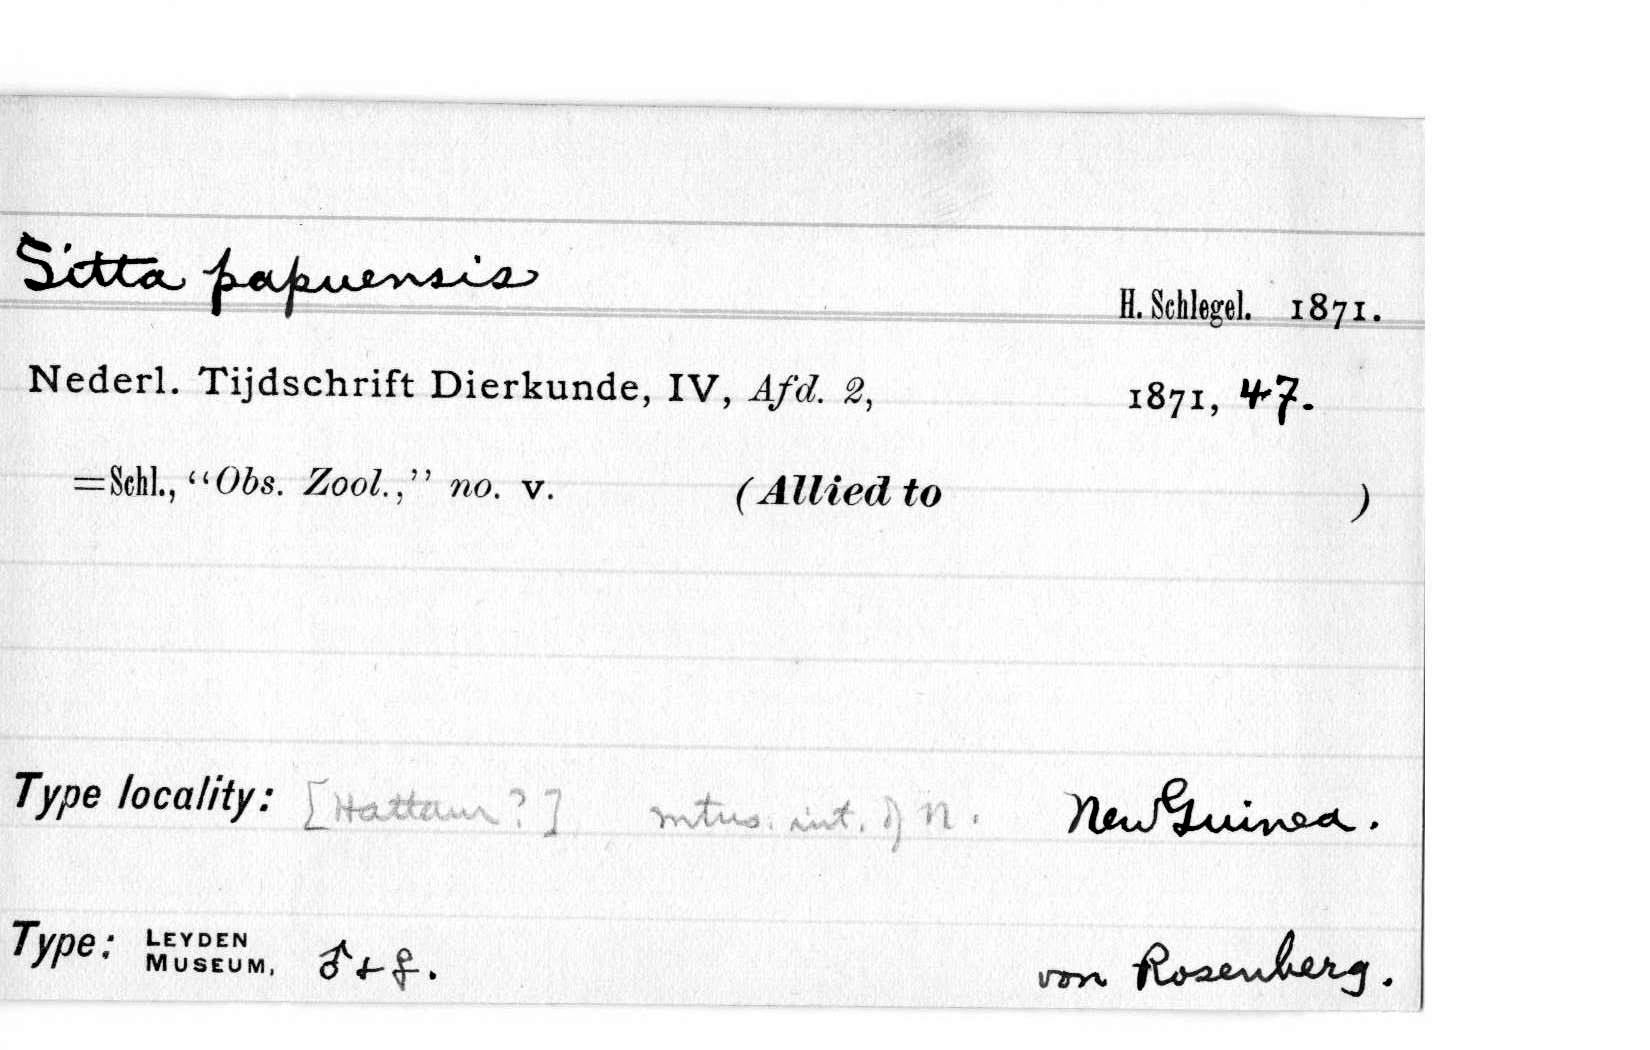 Sitta papuensis
H. Schlegel. 1871.
Nederl. Tijdschrift Dierkunde, IV, Afd. 2, 1871, 47.
=Schl., “Obs. Zool.,” no. v. (Allied to )
Type locality: [Hattam ?] mtns. int. of N. New Guinea.
Type: LEYDEN MUSEUM, ♂ + ♀. von Rosenberg.